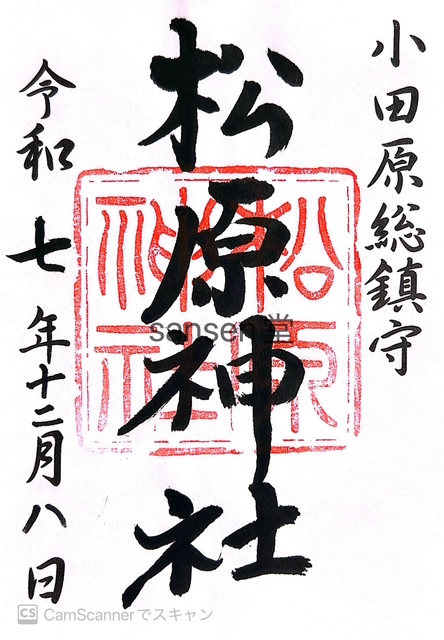 小田原総鎮守
松原神社
令和七年十二月八日
松原
神社
sansen堂
CS CamScannerでスキャン